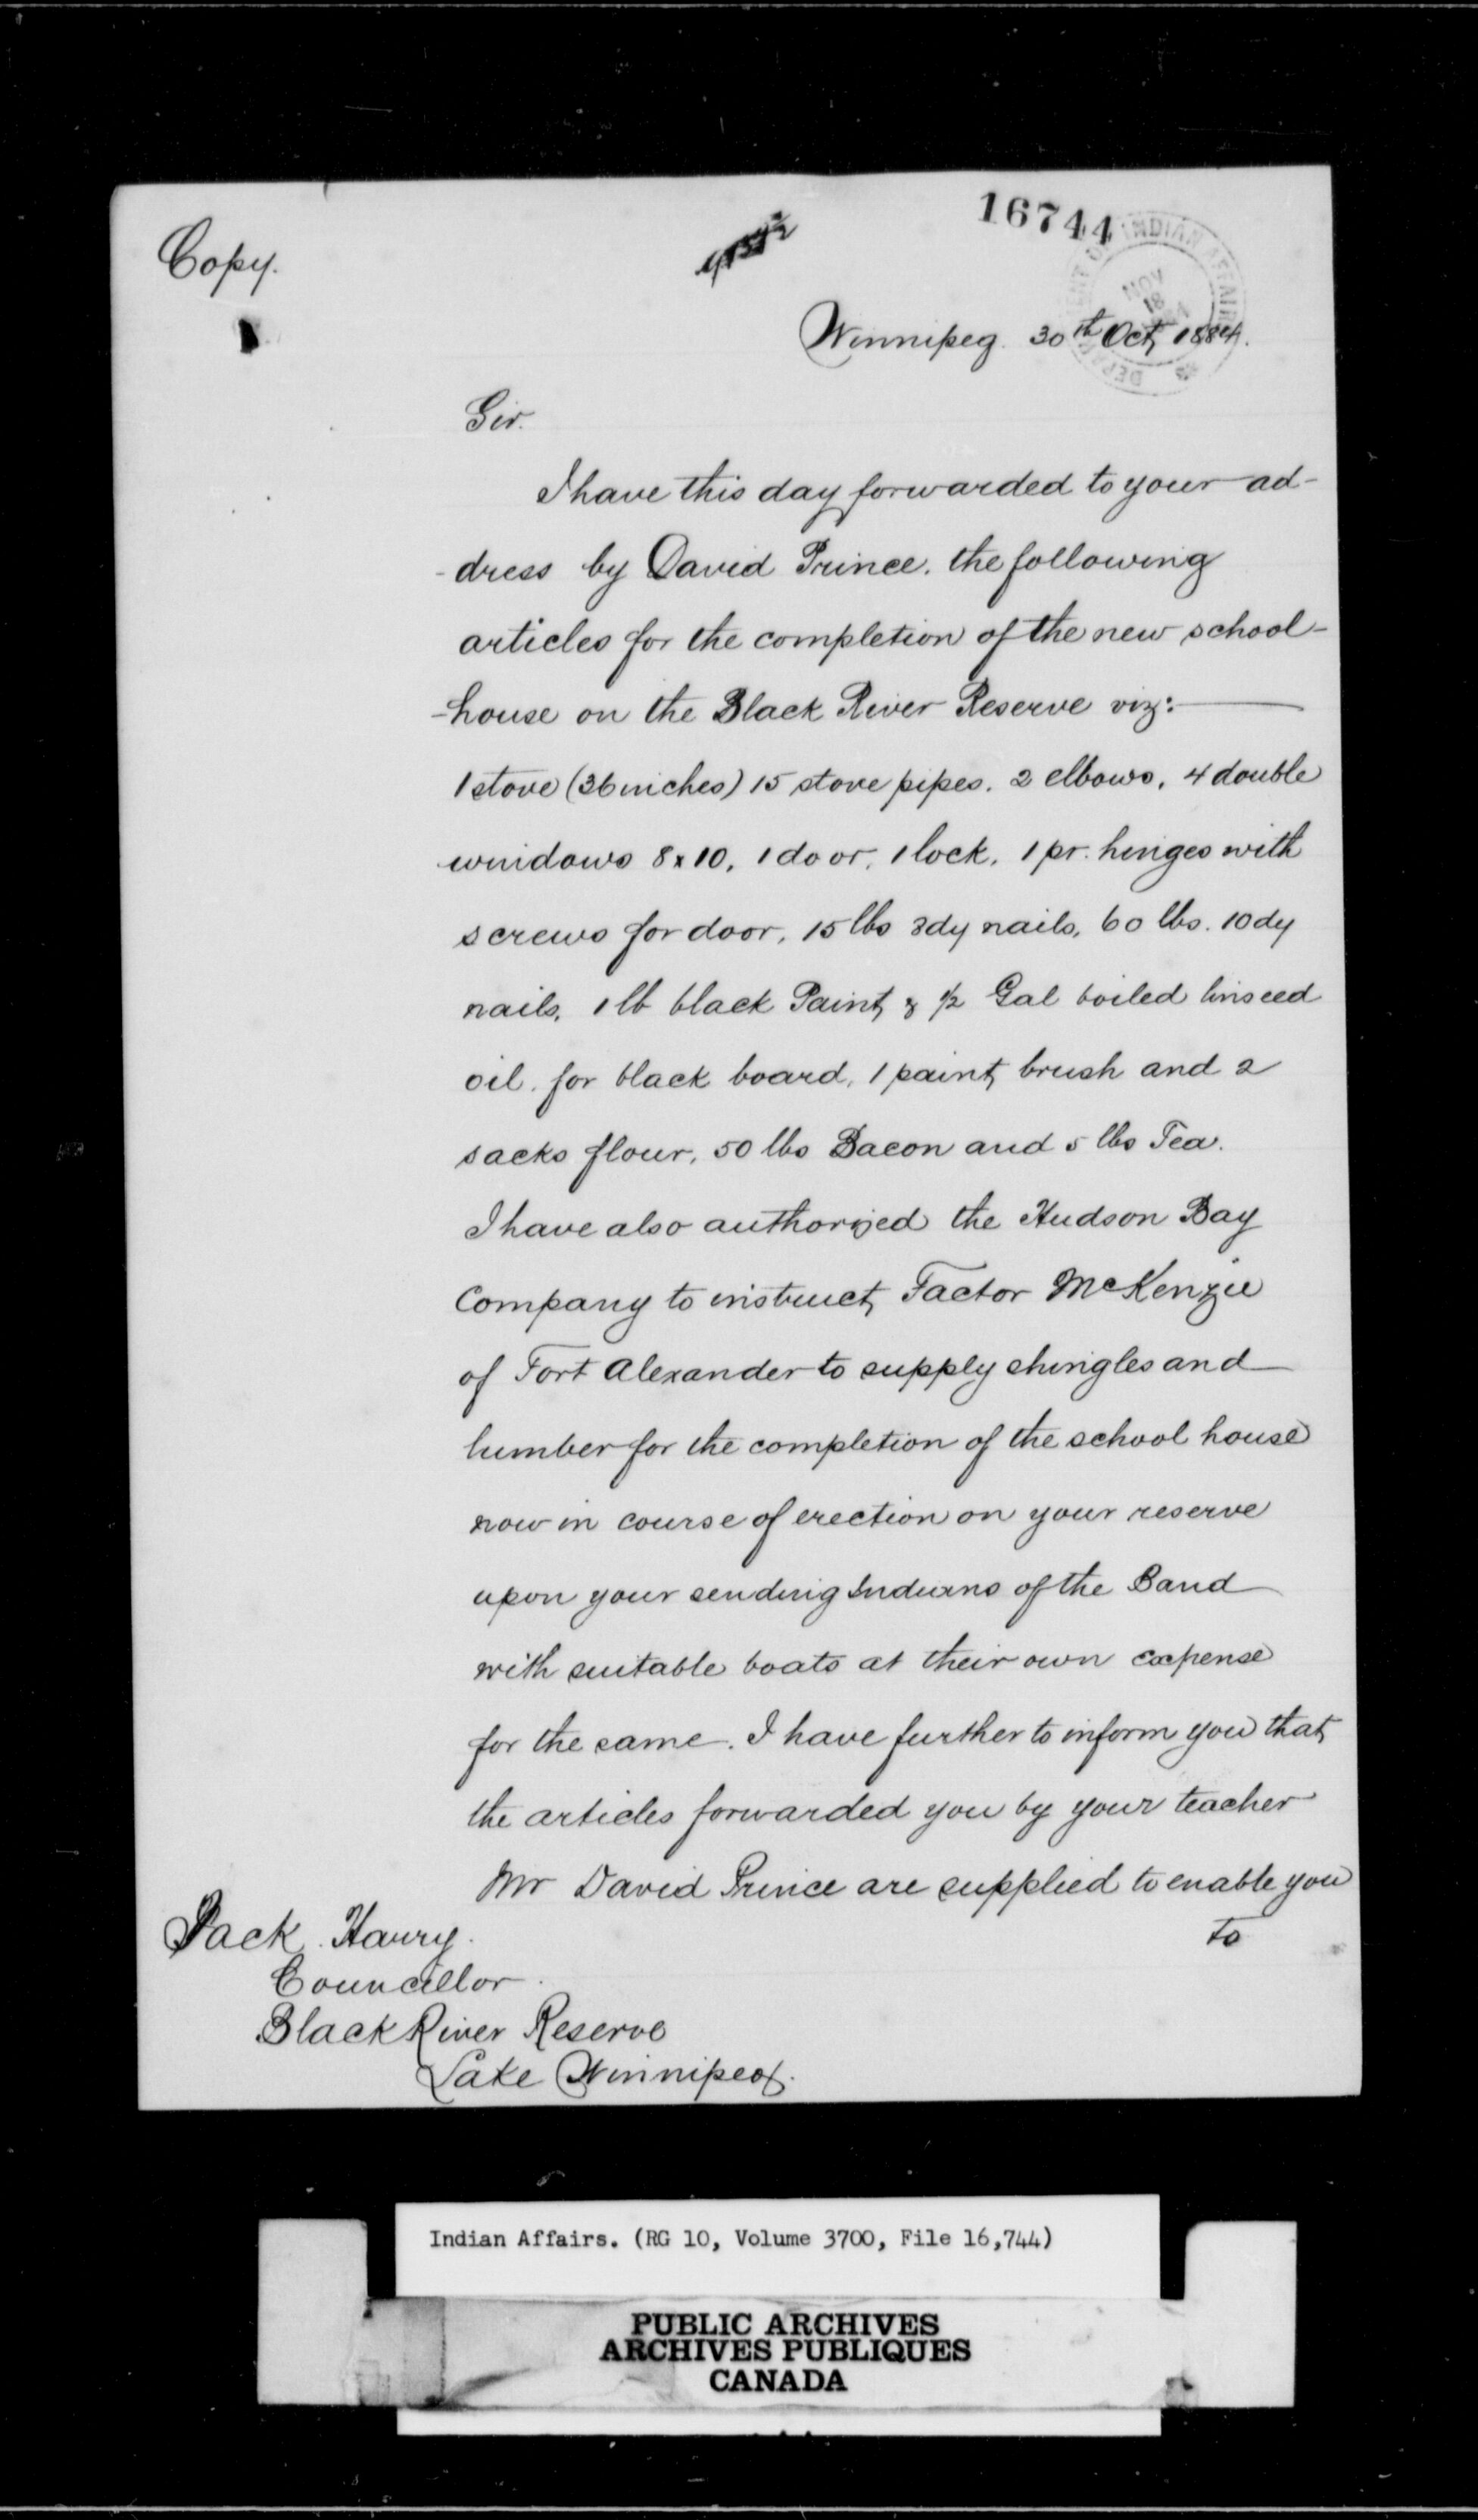 16744
Copy.
DEPARTMENT OF INDIAN AFFAIRS
NOV
18
Winnipeg. 30th Oct, 1884.
Sir.
I have this day forwarded to your ad-
-dress by David Prince. the following
articles for the completion of the new school-
-house on the Black River Reserve viz:
1 stove (36 inches) 15 stove pipes. 2 elbows, 4 double
windows 8x10, 1 door, 1 lock, 1 pr. hinges with
screws for door, 15 lbs 3dy nails, 60 lbs. 10dy
nails, 1 lb black Paint, & 1/2 Gal boiled linseed
oil. for black board, 1 paint brush and 2
sacks flour, 50 lbs Bacon and 5 lbs Tea.
I have also authorized the Hudson Bay
Company to instruct, Factor McKenzie
of Fort Alexander to supply shingles and
lumber for the completion of the school house
now in course of erection on your reserve
upon your sending Indians of the Band
with suitable boats at their own expense
for the same. I have further to inform you that,
the articles forwarded you by your teacher
Mr David Prince are supplied to enable you
to
Jack Harry.
Councillor.
Black River Reserve
Lake Winnipeg.
Indian Affairs. (RG 10, Volume 3700, File 16,744)
PUBLIC ARCHIVES
ARCHIVES PUBLIQUES
CANADA